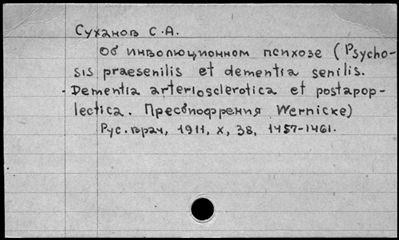 Суханов С.А.
Об инволюционном психозе (Psycho-
sis praesenilis et dementia senilis.
Dementia arteriosclerotica et postapop-
lectica. Пресбиофрения Wernicke)
Рус. врач, 1911, X, 38, 1457-1461.